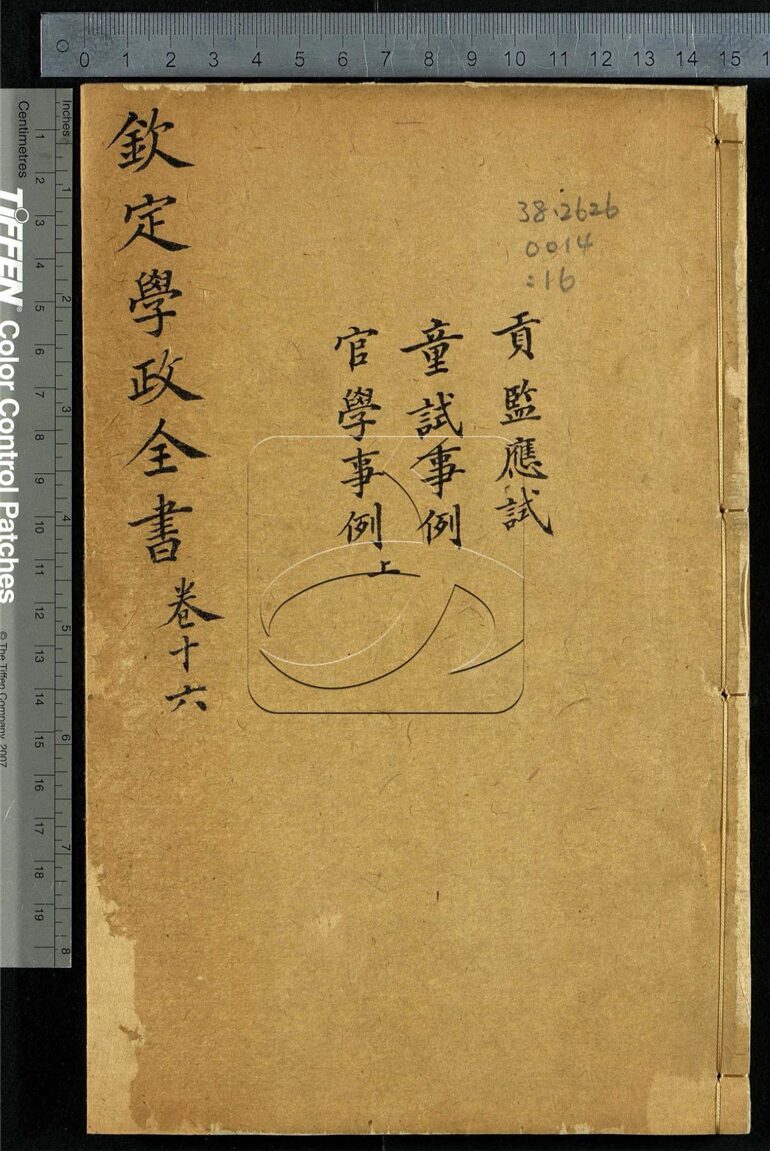 欽定學政全書卷十六
38.2626
0014
:16
貢監應試
童試事例
官學事例上
0 1 2 3 4 5 6 7 8 9 10 11 12 13 14 15 1
Inches
1 2 3 4 5 6 7 8
Centimetres
1 2 3 4 5 6 7 8 9 10 11 12 13 14 15 16 17 18 19
TIFFEN® Color Control Patches
© The Tiffen Company, 2007